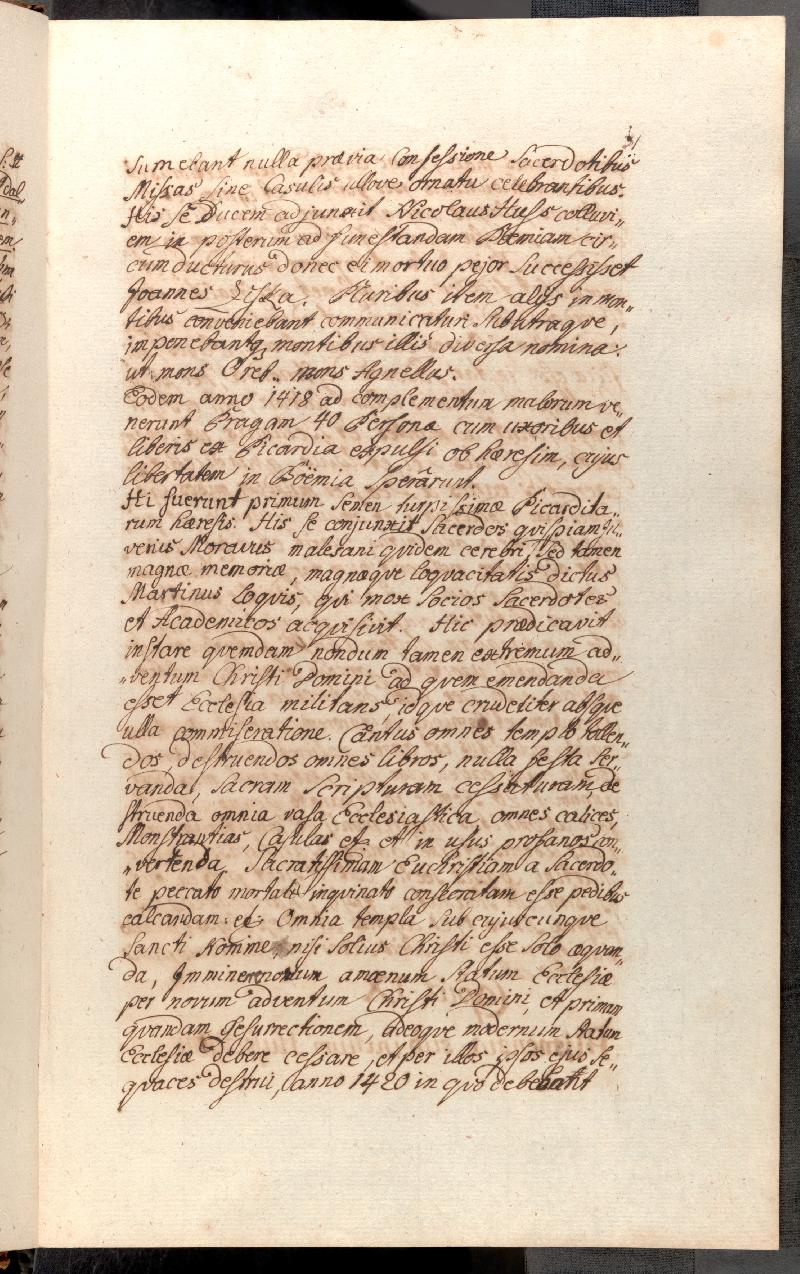 Sumebant nulla prævia Confessione Sacerdotibus
Missas sine Casulis ullove ornatu celebrantibus.
His se Ducem adjunxit Nicolaus Huss colluvi„
em in posterum ad funestandam Bœmiam cir„
cumducturus donec ei mortuo pejor Successisset
Joannes Ziska. Pluribus item alijs in mon„
tibus conveniebant communicaturi sub utraque,
imponebantq, montibus illis diversa nomina.
ut mons Oreb„ mons Agnellus.
Eodem anno 1418 ad complementum malorum ve„
nerunt Pragam 40 Personæ cum uxoribus et
liberis ex Picardia expulsi ob hæresim, cujus
libertatem in Böemia sperârunt.
Hi fuerunt primum semen turpissimæ Picardita„
rum hæresis. His se conjunxit Sacerdos quispiam Ju„
venis Moravus malesani quidem cerebri, sed tamen
magnæ memoriæ, magnæque loquacitatis dictus
Martinus Loquis, qui mox socios Sacerdotes
et Academicos acquisivit. Hic prædicavit
instare quemdam nondum tamen extremum ad„
„ventum Christi Domini ad quem emendanda
esset Ecclesia militans, idque crudeliter absque
ulla commiseratione. Cantus omnes templo tollen„
dos, destruendos omnes libros, nulla festa ser„
vanda, sacram Scripturam cessaturam, de
struenda omnia vasa Ecclesiastica omnes calices,
Monstrantias, Casulas etc et in usus profanos con„
„vertenda Sacratissimam Euchristiam a Sacerdo„
te peccato mortali inquinato consecratam esse pedibus
calcandam: etc Omnia templa sub cujuscunque
Sancti Nomine, nisi solius Christi esse solo æquan„
da, amœnum statum Ecclesiæ
per novum adventum Christi Domini, et primam
quandam Resurrectionem, adeoque modernum statum
Ecclesiæ debere cessare, et per illos ipsos ejus se„
quaces destrui, anno 1420 in quo